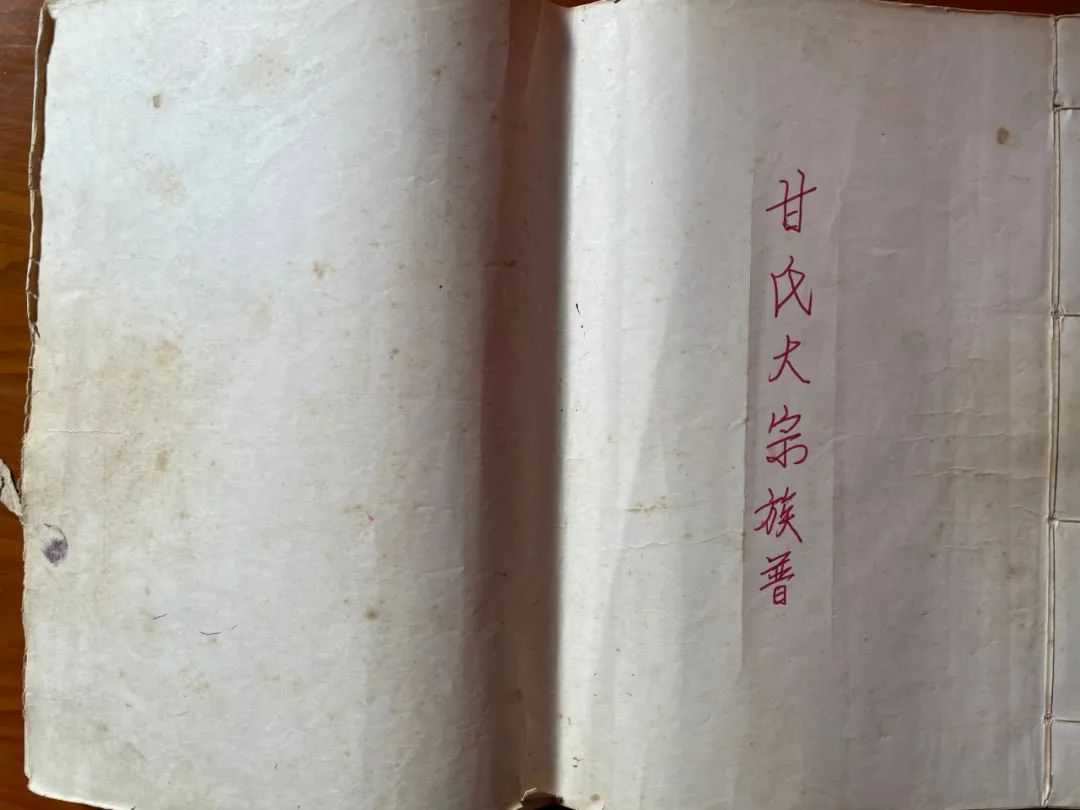 甘氏大宗族普